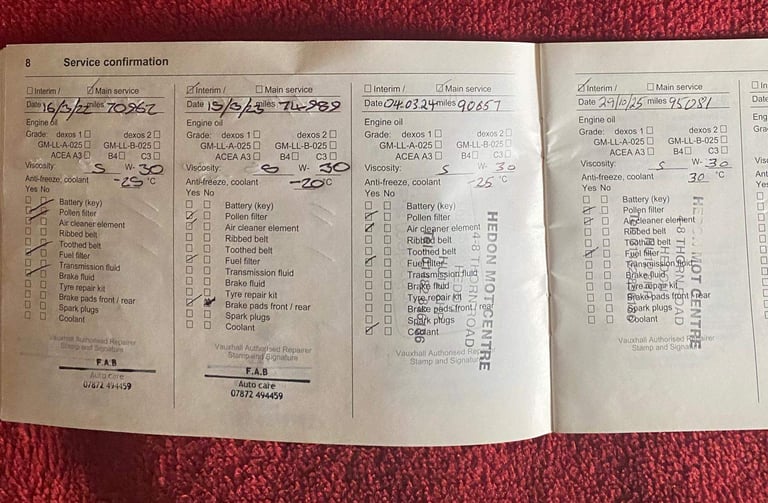 8 Service confirmation
Interim / Main service
Date 16/3/22 miles 70962
Engine oil
Grade: dexos 1 dexos 2
GM-LL-A-025 GM-LL-B-025
ACEA A3 B4 C3
Viscosity: 5 W- 30
Anti-freeze, coolant -25 °C
Yes No
Battery (key)
Pollen filter
Air cleaner element
Ribbed belt
Toothed belt
Fuel filter
Transmission fluid
Brake fluid
Tyre repair kit
Brake pads front / rear
Spark plugs
Coolant
Vauxhall Authorised Repairer
Stamp and Signature
F.A.B
Auto care
07872 494459
Interim / Main service
Date miles 74989
Engine oil
Grade: dexos 1 dexos 2
GM-LL-A-025 GM-LL-B-025
ACEA A3 B4 C3
Viscosity: W- 30
Anti-freeze, coolant -20 °C
Yes No
Battery (key)
Pollen filter
Air cleaner element
Ribbed belt
Toothed belt
Fuel filter
Transmission fluid
Brake fluid
Tyre repair kit
Brake pads front / rear
Spark plugs
Coolant
Vauxhall Authorised Repairer
Stamp and Signature
F.A.B
Auto care
07872 494459
Interim / Main service
Date 04.03.24 miles 90657
Engine oil
Grade: dexos 1 dexos 2
GM-LL-A-025 GM-LL-B-025
ACEA A3 B4 C3
Viscosity: 5 W- 30
Anti-freeze, coolant -25 °C
Yes No
Battery (key)
Pollen filter
Air cleaner element
Ribbed belt
Toothed belt
Fuel filter
Transmission fluid
Brake fluid
Tyre repair kit
Brake pads front / rear
Spark plugs
Coolant
Vauxhall Authorised Repairer
Stamp and Signature
HEDON MOT CENTRE
Interim / Main service
Date 29/10/25 miles 95081
Engine oil
Grade: dexos 1 dexos 2
GM-LL-A-025 GM-LL-B-025
ACEA A3 B4 C3
Viscosity: 5 W- 30
Anti-freeze, coolant 30 °C
Yes No
Battery (key)
Pollen filter
Air cleaner element
Ribbed belt
Toothed belt
Fuel filter
Transmission fluid
Brake fluid
Tyre repair kit
Brake pads front / rear
Spark plugs
Coolant
Vauxhall Authorised Repairer
Stamp and Signature
HEDON MOT CENTRE